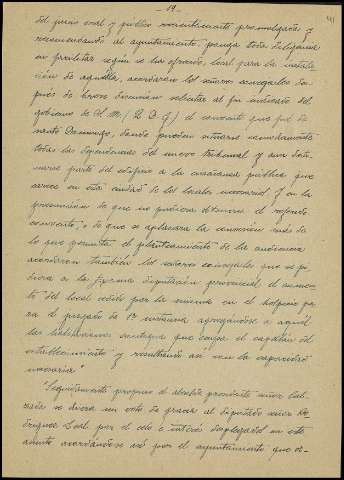 19
41
del juicio oral y publico recientemente promulgada y
recomendando al ayuntamiento, ponga toda diligencia
en facilitar según se ha ofrecido, local para la instala-
ción de aquella, acordaron los señores concejales des-
pués de breve discusión solicitar al fin indicado del
gobierno de S. M. (Q. D. G.) el convento que fué de
santo Domingo, donde pueden situarse comodamente
todas las dependencias del nuevo tribunal y aun des-
tinarse parte del edificio a la enseñanza pública que
carece en esta ciudad de los locales necesarios y en la
previsión de que no pudiera obtenerse el referido
convento, o de que se aplazara la concesión más de
lo que permita el planteamiento de la audiencia
acordaron también los señores concejales que se pi-
diera a la Excma diputación provincial el aumen-
to del local cedido por la misma en el hospicio pa-
ra el juzgado de 1ª instancia agregándose a aquél
las habitaciones contiguas que ocupa el capellán del
establecimiento y resultando así con la capacidad
necesaria"
"Seguidamente propuso el alcalde presidente señor
se diera un voto de gracias al diputado señor Ro-
dríguez Leal por el celo e interés desplegados en este
asunto acordándose así por el ayuntamiento que